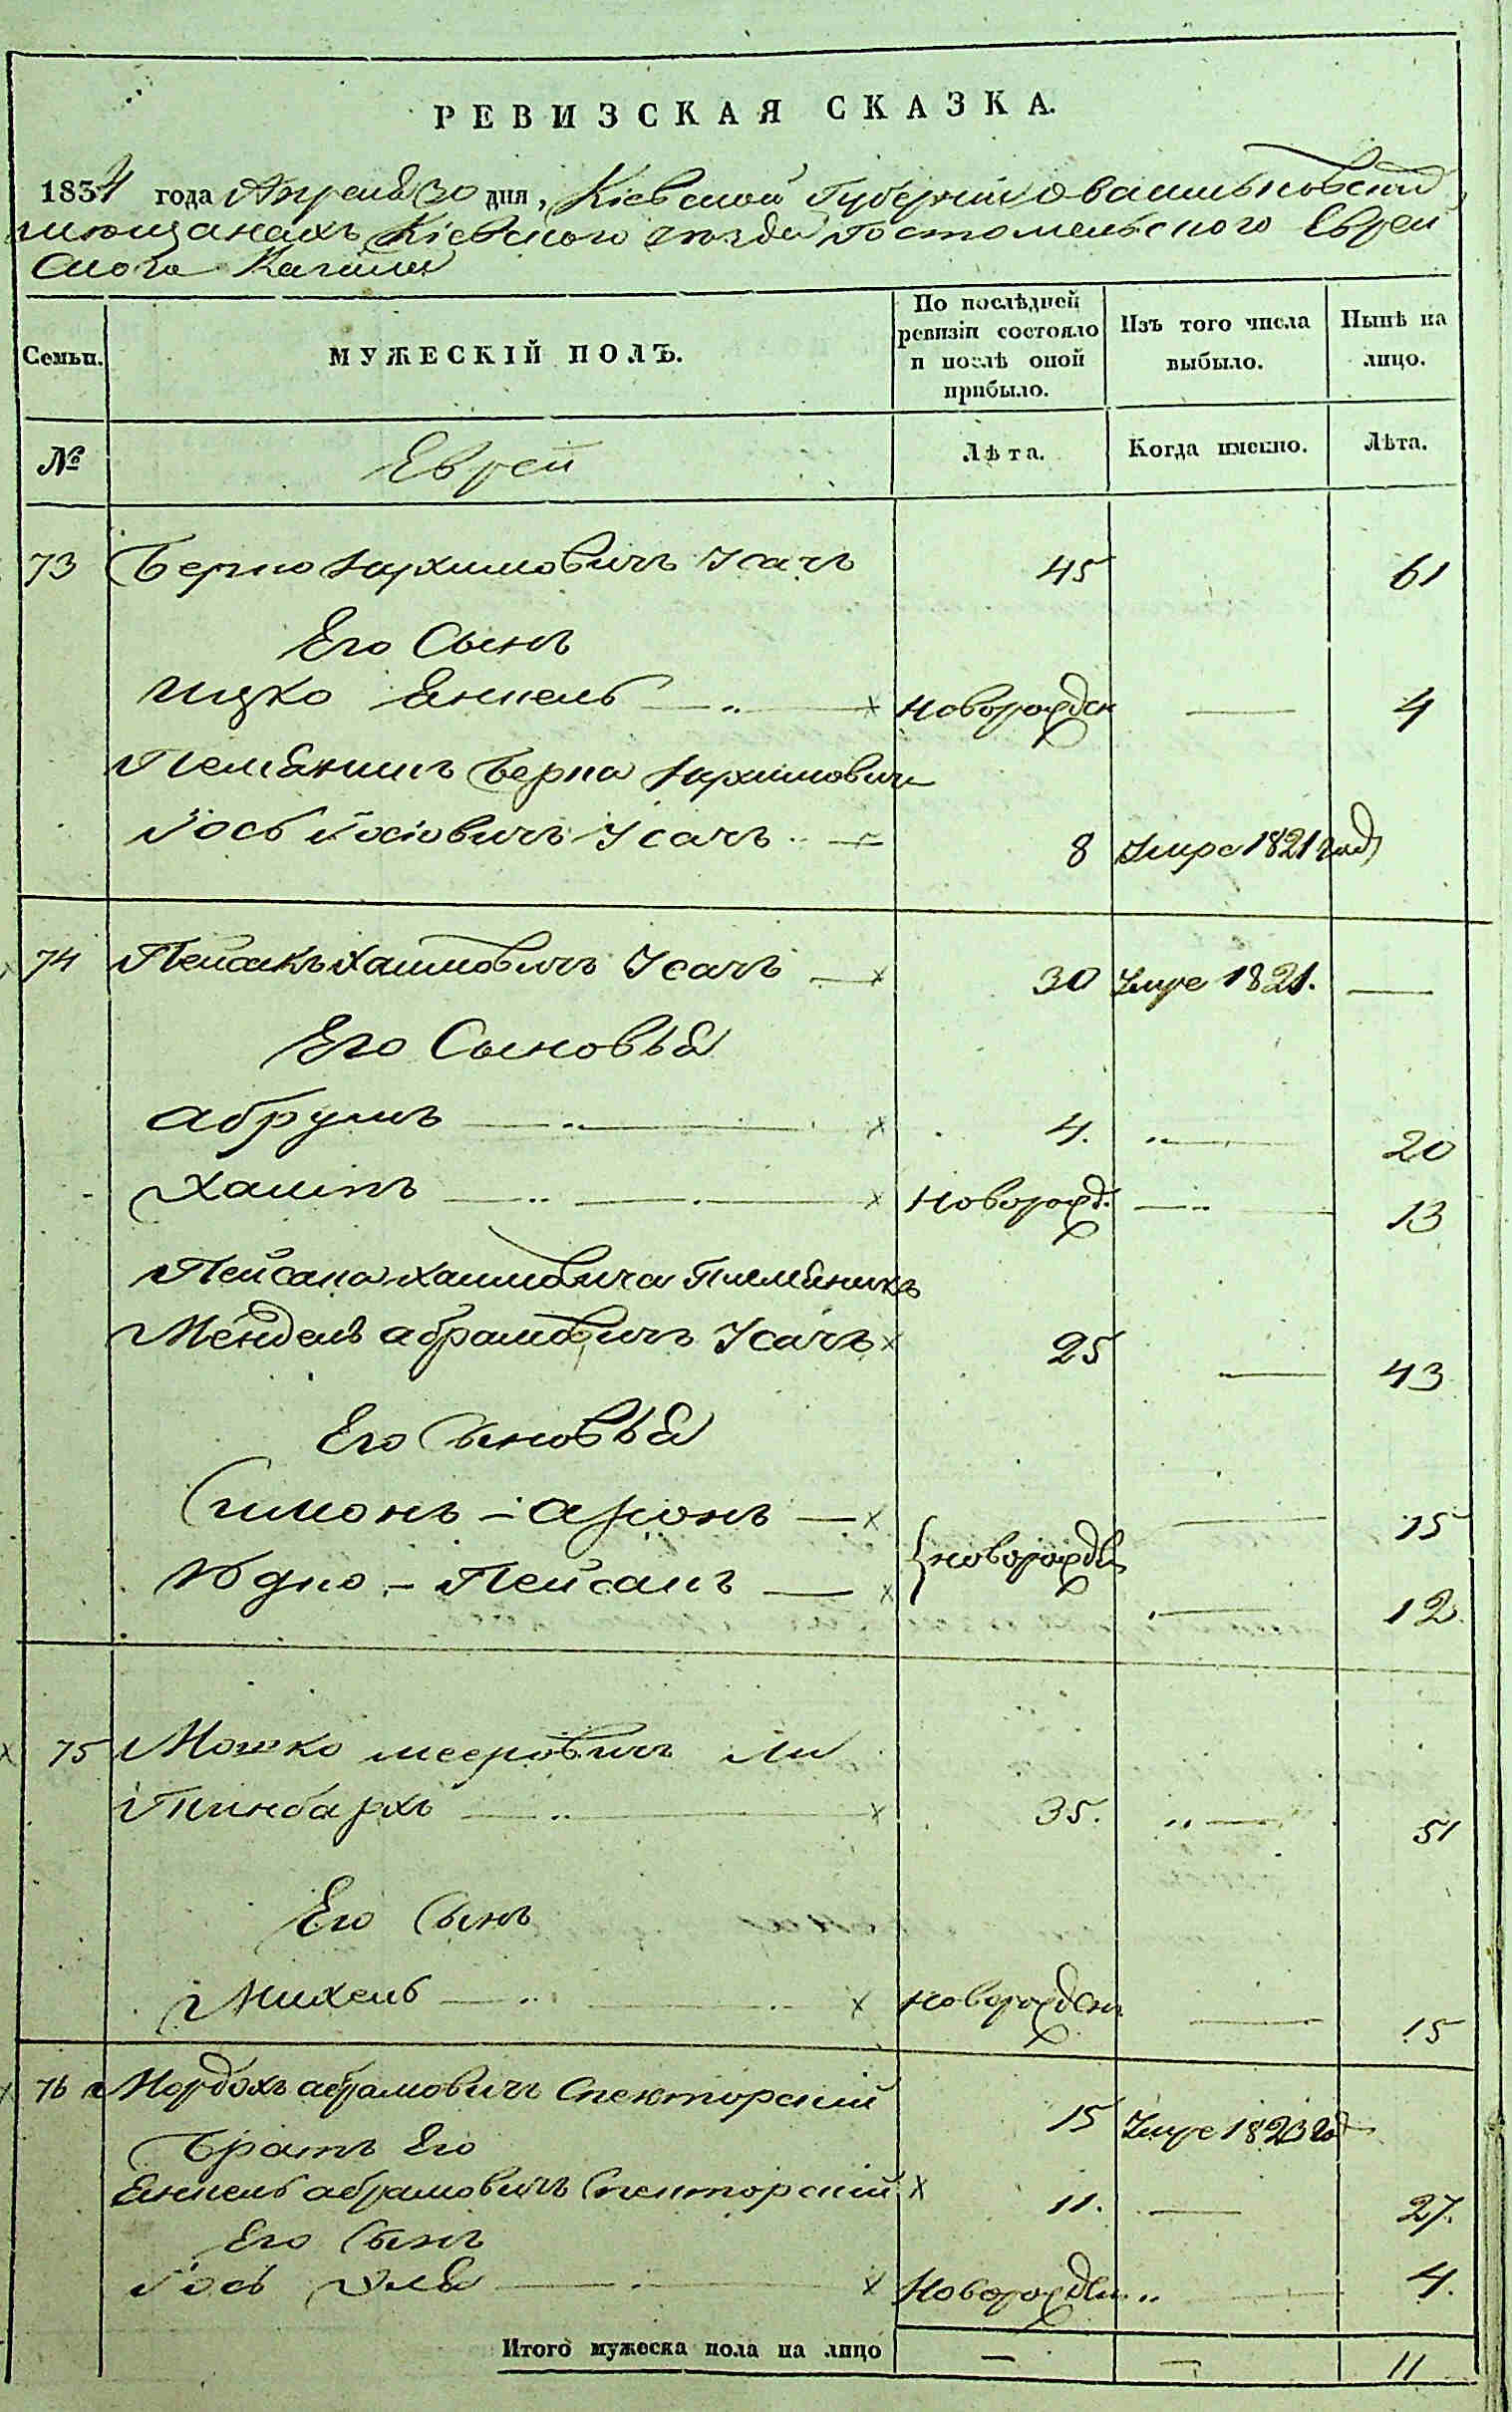 РЕВИЗСКАЯ СКАЗКА.
1834 года Апреля 30 дня, Кіевской Губерніи о васильковскихъ
мещанахъ Кіевского уезда Гостомельского Еврей
ского Кагала
Семьи. МУЖЕСКІЙ ПОЛЪ. По послѣдней ревизіи состояло и послѣ оной прибыло. Изъ того числа выбыло. Нынѣ на лицо.
№ Еврей Лѣта. Когда именно. Лѣта.
73 Берко Нухимовичъ Усачъ 45 61
Его Сынъ
Ицко Янкель новорожден 4
Племянникъ Берка Нухимовича
Іось Іосіовичъ Усачъ 8 Умре 1821 году
74 Пейсахъ Хаимовичъ Усачъ 30 Умре 1821.
Его Сыновья
Абрумъ 4. 20
Хаимъ Новорожд. 13
Пейсаха Хаимовича Племянникъ
Мендель Абрамовичъ Усачъ 25 43
Его Сыновья
Симонъ - Аронъ 15
Юдко - Пейсахъ новорожден 12.
75 Мошко Мееровичъ Ли
35. 51
Его Сынъ
Михель новорожден 15
76 Мордохъ Абрамовичъ Спекторскій 15 Умре 1823 год
Братъ Его
Янкель Абрамовичъ Спекторскій 11. 27.
Его Сынъ
Іось Новорожден 4.
Итого мужеска пола на лицо 11